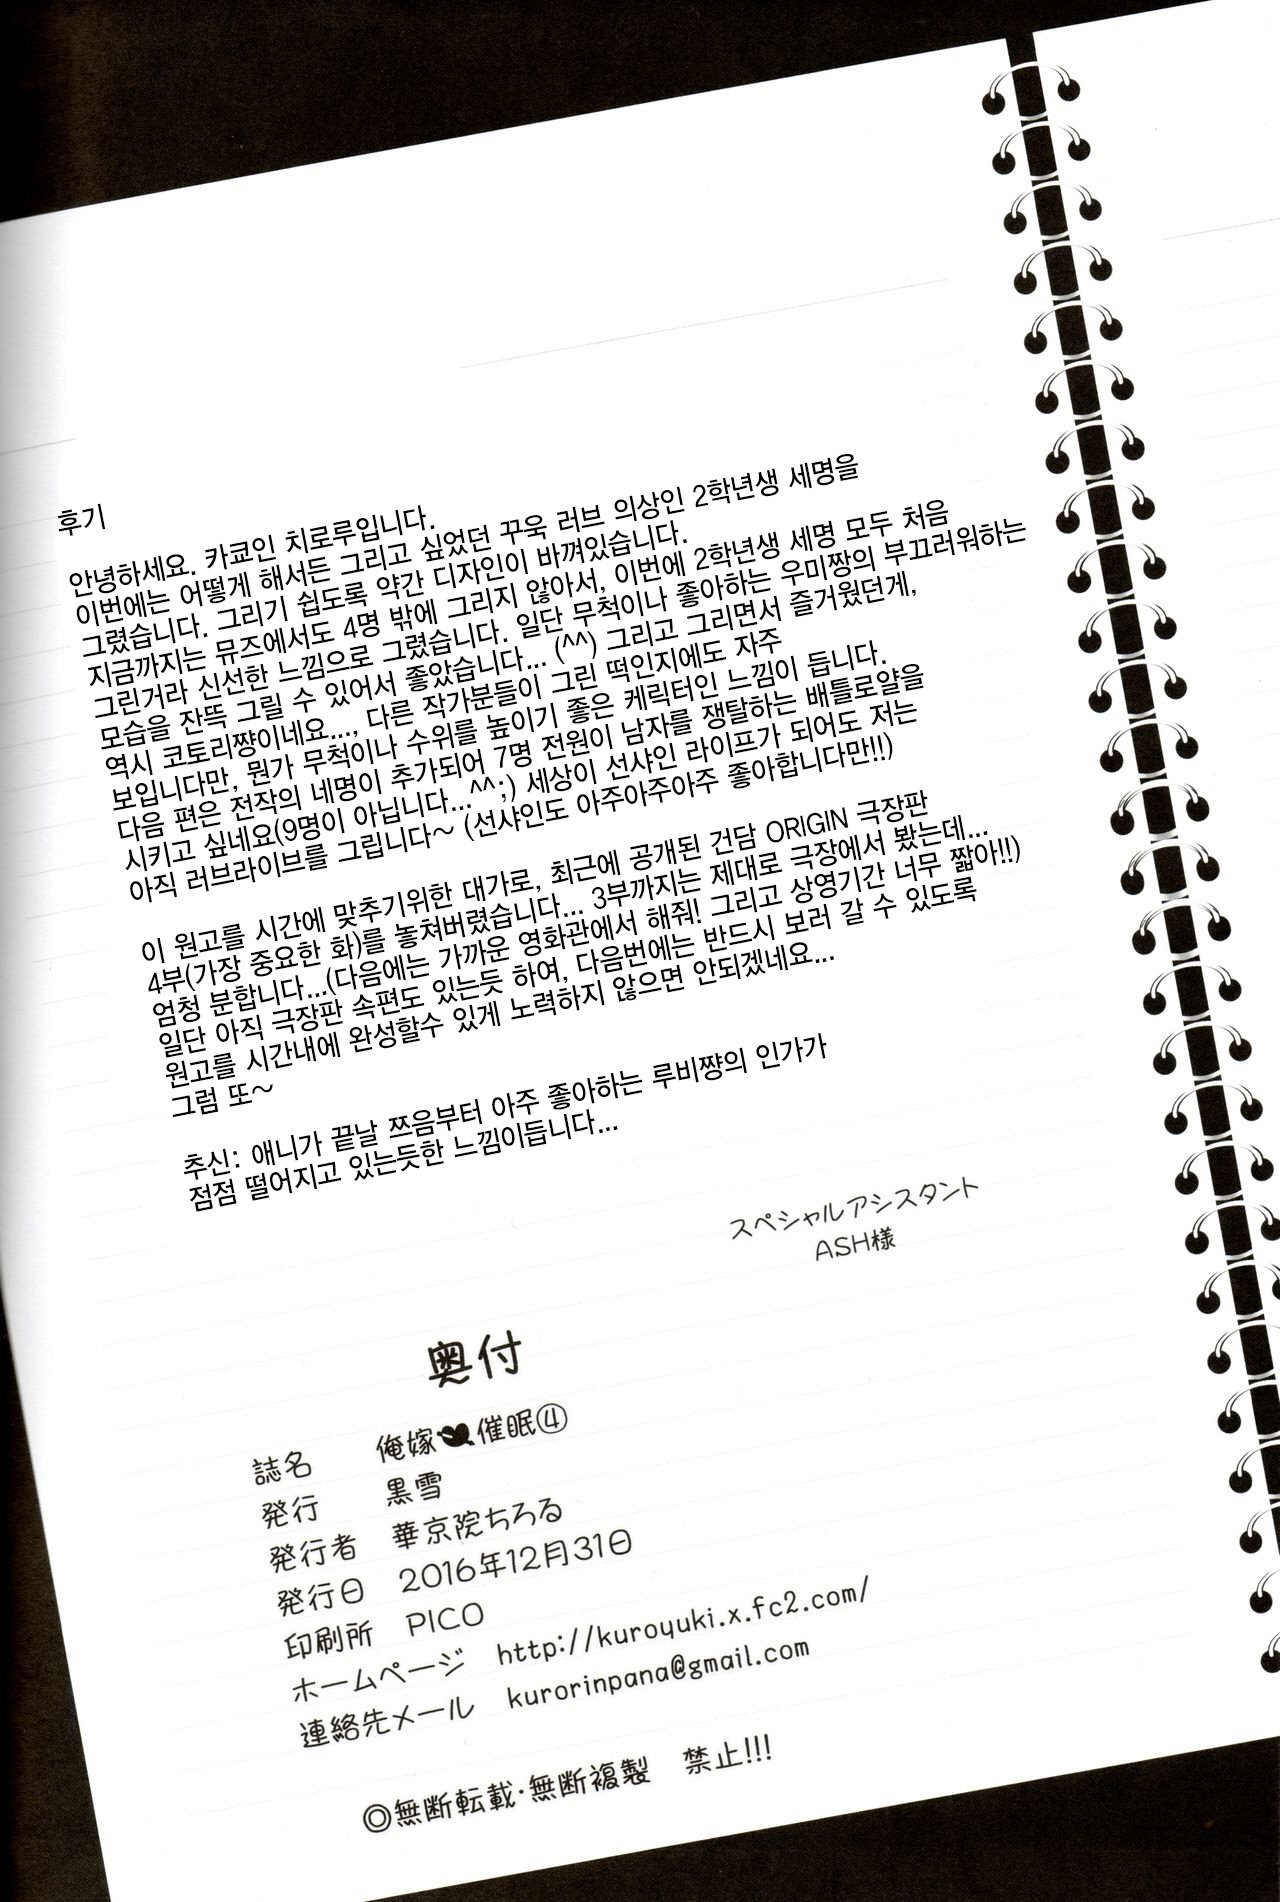 후기
안녕하세요. 카쿄인 치로루입니다.
이번에는 어떻게 해서든 그리고 싶었던 꾸욱 러브 의상인 2학년생 세명을
그렸습니다. 그리기 쉽도록 약간 디자인이 바껴있습니다.
지금까지는 뮤즈에서도 4명 밖에 그리지 않아서, 이번에 2학년생 세명 모두 처음
그린거라 신선한 느낌으로 그렸습니다. 일단 무척이나 좋아하는 우미짱의 부끄러워하는
모습을 잔뜩 그릴 수 있어서 좋았습니다... (^^) 그리고 그리면서 즐거웠던게,
역시 코토리쨩이네요..., 다른 작가분들이 그린 떡인지에도 자주
보입니다만, 뭔가 무척이나 수위를 높이기 좋은 케릭터인 느낌이 듭니다.
다음 편은 전작의 네명이 추가되어 7명 전원이 남자를 쟁탈하는 배틀로얄을
시키고 싶네요(9명이 아닙니다...^^;) 세상이 선샤인 라이프가 되어도 저는
아직 러브라이브를 그립니다~ (선샤인도 아주아주아주 좋아합니다만!!)
이 원고를 시간에 맞추기위한 대가로, 최근에 공개된 건담 ORIGIN 극장판
4부(가장 중요한 화)를 놓쳐버렸습니다... 3부까지는 제대로 극장에서 봤는데...
엄청 분합니다...(다음에는 가까운 영화관에서 해줘! 그리고 상영기간 너무 짧아!!)
일단 아직 극장판 속편도 있는듯 하여, 다음번에는 반드시 보러 갈 수 있도록
원고를 시간내에 완성할수 있게 노력하지 않으면 안되겠네요...
그럼 또~
추신: 애니가 끝날 쯔음부터 아주 좋아하는 루비쨩의 인가가
점점 떨어지고 있는듯한 느낌이듭니다...
スペシャルアシスタント
ASH様
奥付
誌名 俺嫁催眠④
発行 黒雪
発行者 華京院ちろる
発行日 2016年12月31日
印刷所 PICO
ホームページ http://kuroyuki.x.fc2.com/
連絡先メール kurorinpana@gmail.com
◎無断転載・無断複製 禁止!!!